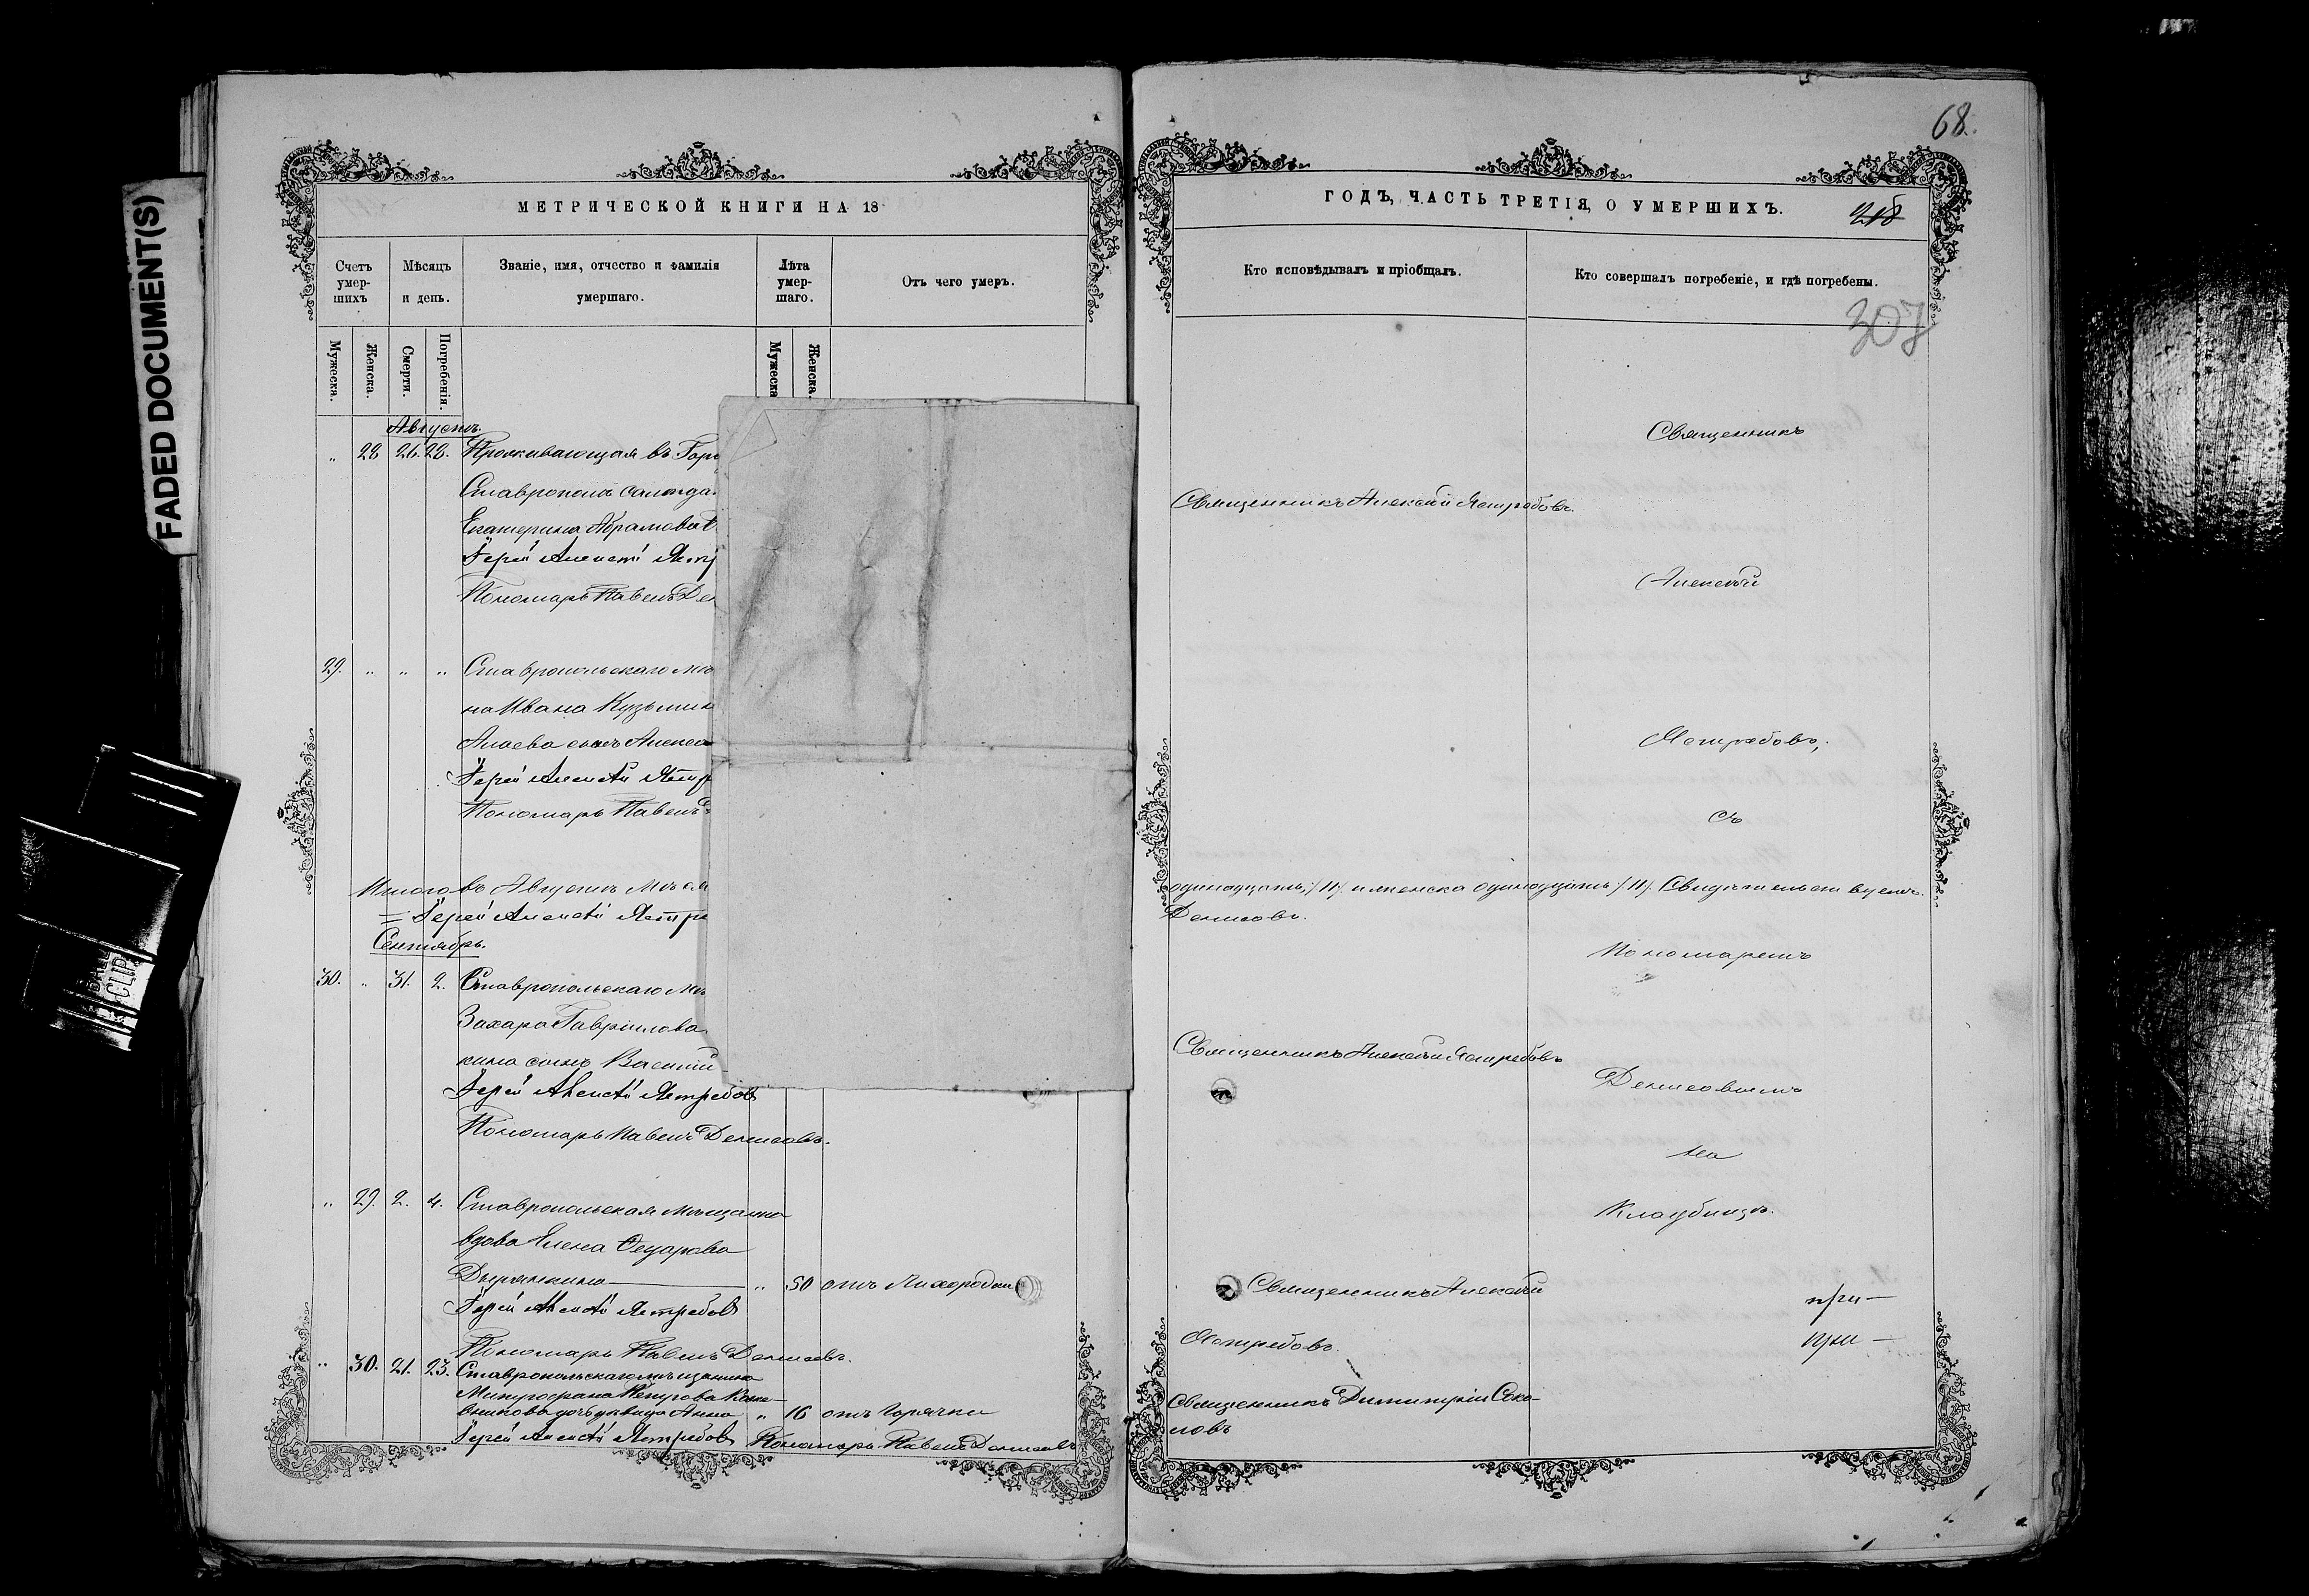 68.
МЕТРИЧЕСКОЙ КНИГИ НА 18
Счетъ умер-шихъ
Мѣсяцъ и день.
Званіе, имя, отчество и фамилія умершаго.
Лѣта умер-шаго.
Отъ чего умеръ.
Мужеска.
Женска.
Смерти.
Погребенія.
Мужеска
Женска.
Августъ.
„ 28 26. 28. Проживающая въ Горо
Ставрополѣ солтда
Екатерина Абрамова
Іерей Алексѣй Ястр
Пономарь Павелъ Де
29. „ „ „ Ставропольскаго мѣ
на Ивана Кузьмин
сынъ Алекса
Іерей Алексѣй Ястр
Пономарь Павелъ
Итого въ Августѣ мѣ
Іерей Алексѣй Ястре
Сентябрь.
30. „ 31. 2. Ставропольскаго Мѣ
Захара Гавріилова
кина сынъ Василій
Іерей Алексѣй Ястребовъ
Пономарь Павелъ Денисовъ.
„ 29. 2. 4. Ставропольская мѣщанка
вдова Елена Федорова
„ 50 отъ Лихорадки
Іерей Алексѣй Ястребовъ
Пономарь Павелъ Денисовъ.
„ 30. 21. 23. Ставропольскаго мѣщанина
дочь дѣвица Анна „ 16 отъ горячки
Іерей Алексѣй Ястребовъ Пономарь Павелъ Денисовъ
ГОДЪ, ЧАСТЬ ТРЕТІЯ, О УМЕРШИХЪ.
218
Кто исповѣдывалъ и пріобщалъ.
Кто совершалъ погребеніе, и гдѣ погребены.
307
Священникъ
Священникъ Алексѣй Ястребовъ.
Алексѣй
Ястребовъ,
съ
одинадцать, /11/. и женска одинадцать /11/. Свидѣтельствуемъ.
Денисовъ.
Пономаремъ
Священникъ Алексѣй Ястребовъ
Денисовымъ
на
Кладбищѣ.
Священникъ Алексѣй
Ястребовъ.
при —
при —
Священникъ Димитрій Соко-
ловъ
FADED DOCUMENT(S)
CLIP